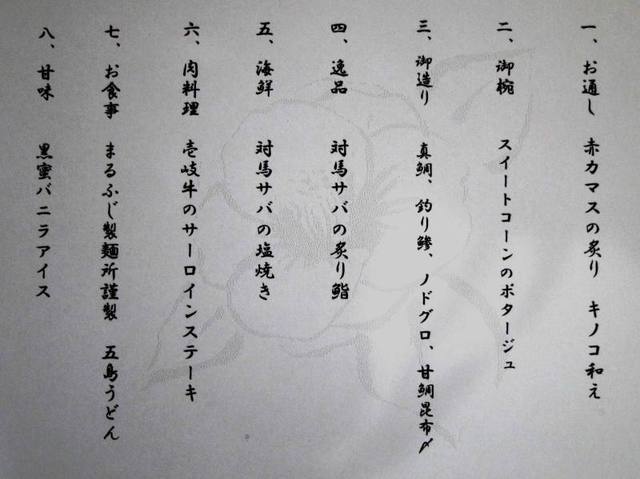 一、お通し 赤カマスの炙り キノコ和え
二、御椀 スイートコーンのポタージュ
三、御造り 真鯛、釣り鯵、ノドグロ、甘鯛昆布〆
四、逸品 対馬サバの炙り鮨
五、海鮮 対馬サバの塩焼き
六、肉料理 壱岐牛のサーロインステーキ
七、お食事 まるふじ製麺所謹製 五島うどん
八、甘味 黒蜜バニラアイス